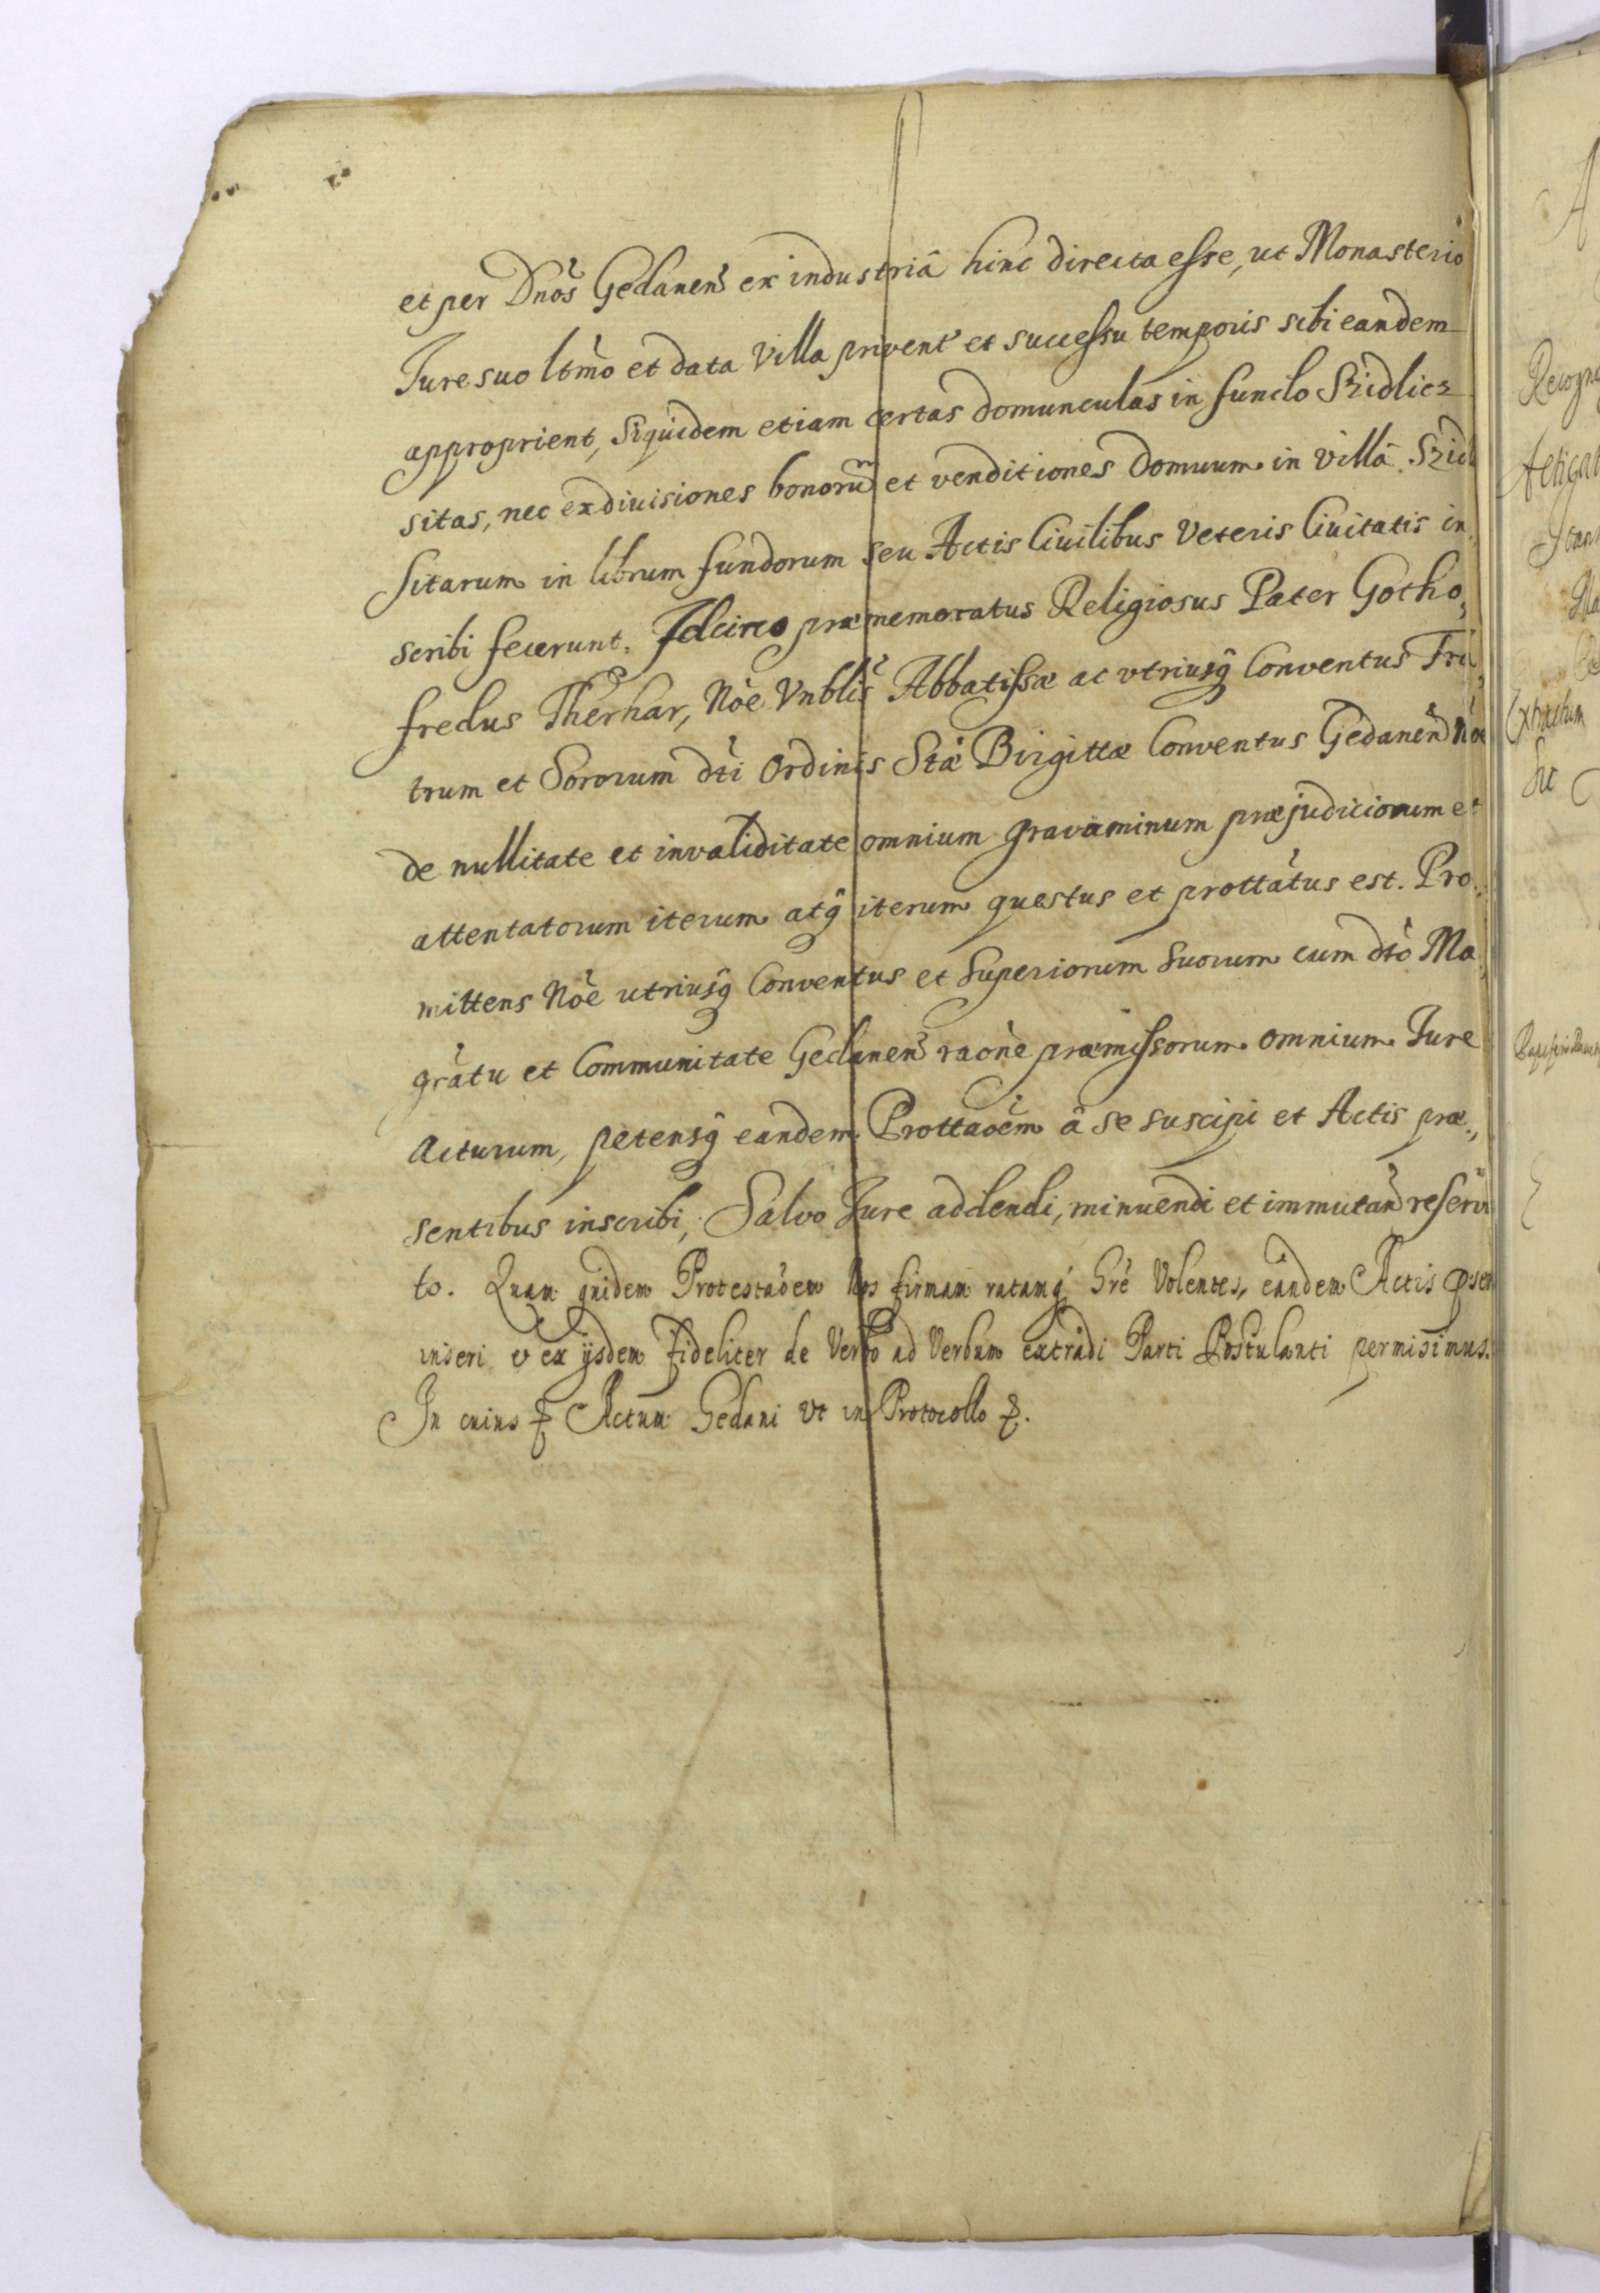 et per Dnos Gedanen ex industriâ hinc directa esse, ut Monasterio
Jure suo ltmo et data Villa privent et successu temporis sibi eandem
approprient, Siquidem etiam certas domunculas in fundo Szidlicz
sitas, nec ex divisiones bonorum et venditiones Domuum in villâ Szidl
sitarum in librum fundorum seu Actis Ciuilibus Veteris Ciuitatis in,
scribi fecerunt. Idcirco præmemoratus Religiosus Pater Gotho,
fredus Therhar, Noê Vnblis Abbatissæ ac vtriusq Conventus Fra,
trum et Sororum dti Ordinis Stæ Birgittæ Conventus Gedanen
de nullitate et invaliditate omnium gravaminum præjudiciorum et
attentatorum iterum atq iterum questus et prottatus est. Pro,
mittens Noê utriusq Conventus et Superiorum Suorum cum dto Ma,
gratu et Communitate Gedanen raône præmissorum omnium Jure
Acturum, petensq eandem Prottaôem â se suscipi et Actis præ,
sentibus inscribi, Salvo Jure addendi, minuendi et immutan reserva
to. Quam quidem Protestaôem Nos firmam ratamq Hre Volentes, eandem Actis pñsen
inseri et ex ijsdem fideliter de Verbo ad Verbum extradi Parti Postulanti permisimus.
In cuius Actum Gedani Vt in Protocollo
A
Extractum